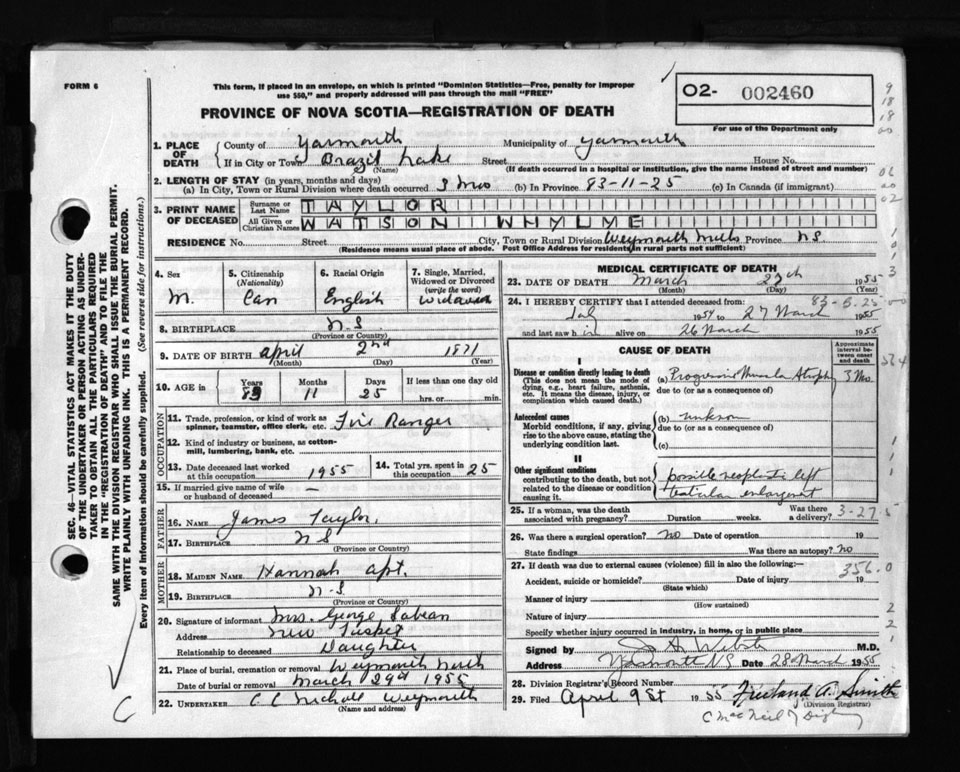 FORM 6
This form, if placed in an envelope, on which is printed "Dominion Statistics—Free, penalty for improper
use $50," and properly addressed will pass through the mail "FREE"
02- 002460
For use of the Department only
PROVINCE OF NOVA SCOTIA—REGISTRATION OF DEATH
1. PLACE OF DEATH
County of Yarmouth Municipality of Yarmouth
If in City or Town Brazil Lake Street House No.
(Name) (If death occurred in a hospital or institution, give the name instead of street and number)
2. LENGTH OF STAY (in years, months and days)
(a) In City, Town or Rural Division where death occurred 3 Mos (b) In Province 83-11-25 (c) In Canada (if immigrant)
3. PRINT NAME OF DECEASED
Surname or Last Name TAYLOR
All Given or Christian Names WATSON WHYLME
RESIDENCE No. Street City, Town or Rural Division Weymouth Mills Province N.S.
(Residence means usual place of abode. Post Office Address for residents in rural parts not sufficient)
4. Sex M.
5. Citizenship (Nationality) Can
6. Racial Origin English
7. Single, Married, Widowed or Divorced (write the word) Widower
8. BIRTHPLACE N.S
(Province or Country)
9. DATE OF BIRTH April 2nd 1871
(Month) (Day) (Year)
10. AGE in Years 83 Months 11 Days 25 If less than one day old
hrs. or min.
OCCUPATION
11. Trade, profession, or kind of work as spinner, teamster, office clerk, etc. Fire Ranger
12. Kind of industry or business, as cotton-mill, lumbering, bank, etc.
13. Date deceased last worked at this occupation 1955 14. Total yrs. spent in this occupation 25
15. If married give name of wife or husband of deceased —
FATHER
16. NAME James Taylor
17. BIRTHPLACE N S
(Province or Country)
MOTHER
18. MAIDEN NAME Hannah Apt.
19. BIRTHPLACE N.S
(Province or Country)
20. Signature of informant Mrs. George Sabean
Address New Tusket
Relationship to deceased Daughter
21. Place of burial, cremation or removal Weymouth North
Date of burial or removal March 29th 1955
22. UNDERTAKER C C Nichols Weymouth
(Name and address)
MEDICAL CERTIFICATE OF DEATH
23. DATE OF DEATH March 27th 1955
(Month) (Day) (Year)
83-5-25
24. I HEREBY CERTIFY that I attended deceased from:
1954 to 27 March 1955
and last saw h im alive on 26 March 1955
CAUSE OF DEATH
Approximate interval between onset and death
I
Disease or condition directly leading to death
(This does not mean the mode of dying, e.g., heart failure, asthenia, etc. It means the disease, injury, or complication which caused death.)
(a) Progressive Muscular Atrophy 3 Mos
due to (or as a consequence of)
Antecedent causes
Morbid conditions, if any, giving rise to the above cause, stating the underlying condition last.
(b)
due to (or as a consequence of)
(c)
II
Other significant conditions
contributing to the death, but not related to the disease or condition causing it.
possible neoplastic left
testicular enlargement
25. If a woman, was the death associated with pregnancy? Duration weeks. Was there a delivery? 3-27-5
26. Was there a surgical operation? No Date of operation 19
State findings Was there an autopsy? no
27. If death was due to external causes (violence) fill in also the following:— 356.0
Accident, suicide or homicide? Date of injury 19
(State which)
Manner of injury
(How sustained)
Nature of injury
Specify whether injury occurred in industry, in home, or in public place
Signed by Webster M.D.
Address Yarmouth NS Date 28 March 1955
28. Division Registrar's Record Number
29. Filed April 9st 1955 Freeland A. Smith
(Division Registrar)
C MacNeil Digby
SEC. 46—VITAL STATISTICS ACT MAKES IT THE DUTY
OF THE UNDERTAKER OR PERSON ACTING AS UNDER-
TAKER TO OBTAIN ALL THE PARTICULARS REQUIRED
IN THE "REGISTRATION OF DEATH" AND TO FILE THE
SAME WITH THE DIVISION REGISTRAR WHO SHALL ISSUE THE BURIAL PERMIT.
WRITE PLAINLY WITH UNFADING INK. THIS IS A PERMANENT RECORD.
Every item of information should be carefully supplied. (See reverse side for instructions.)